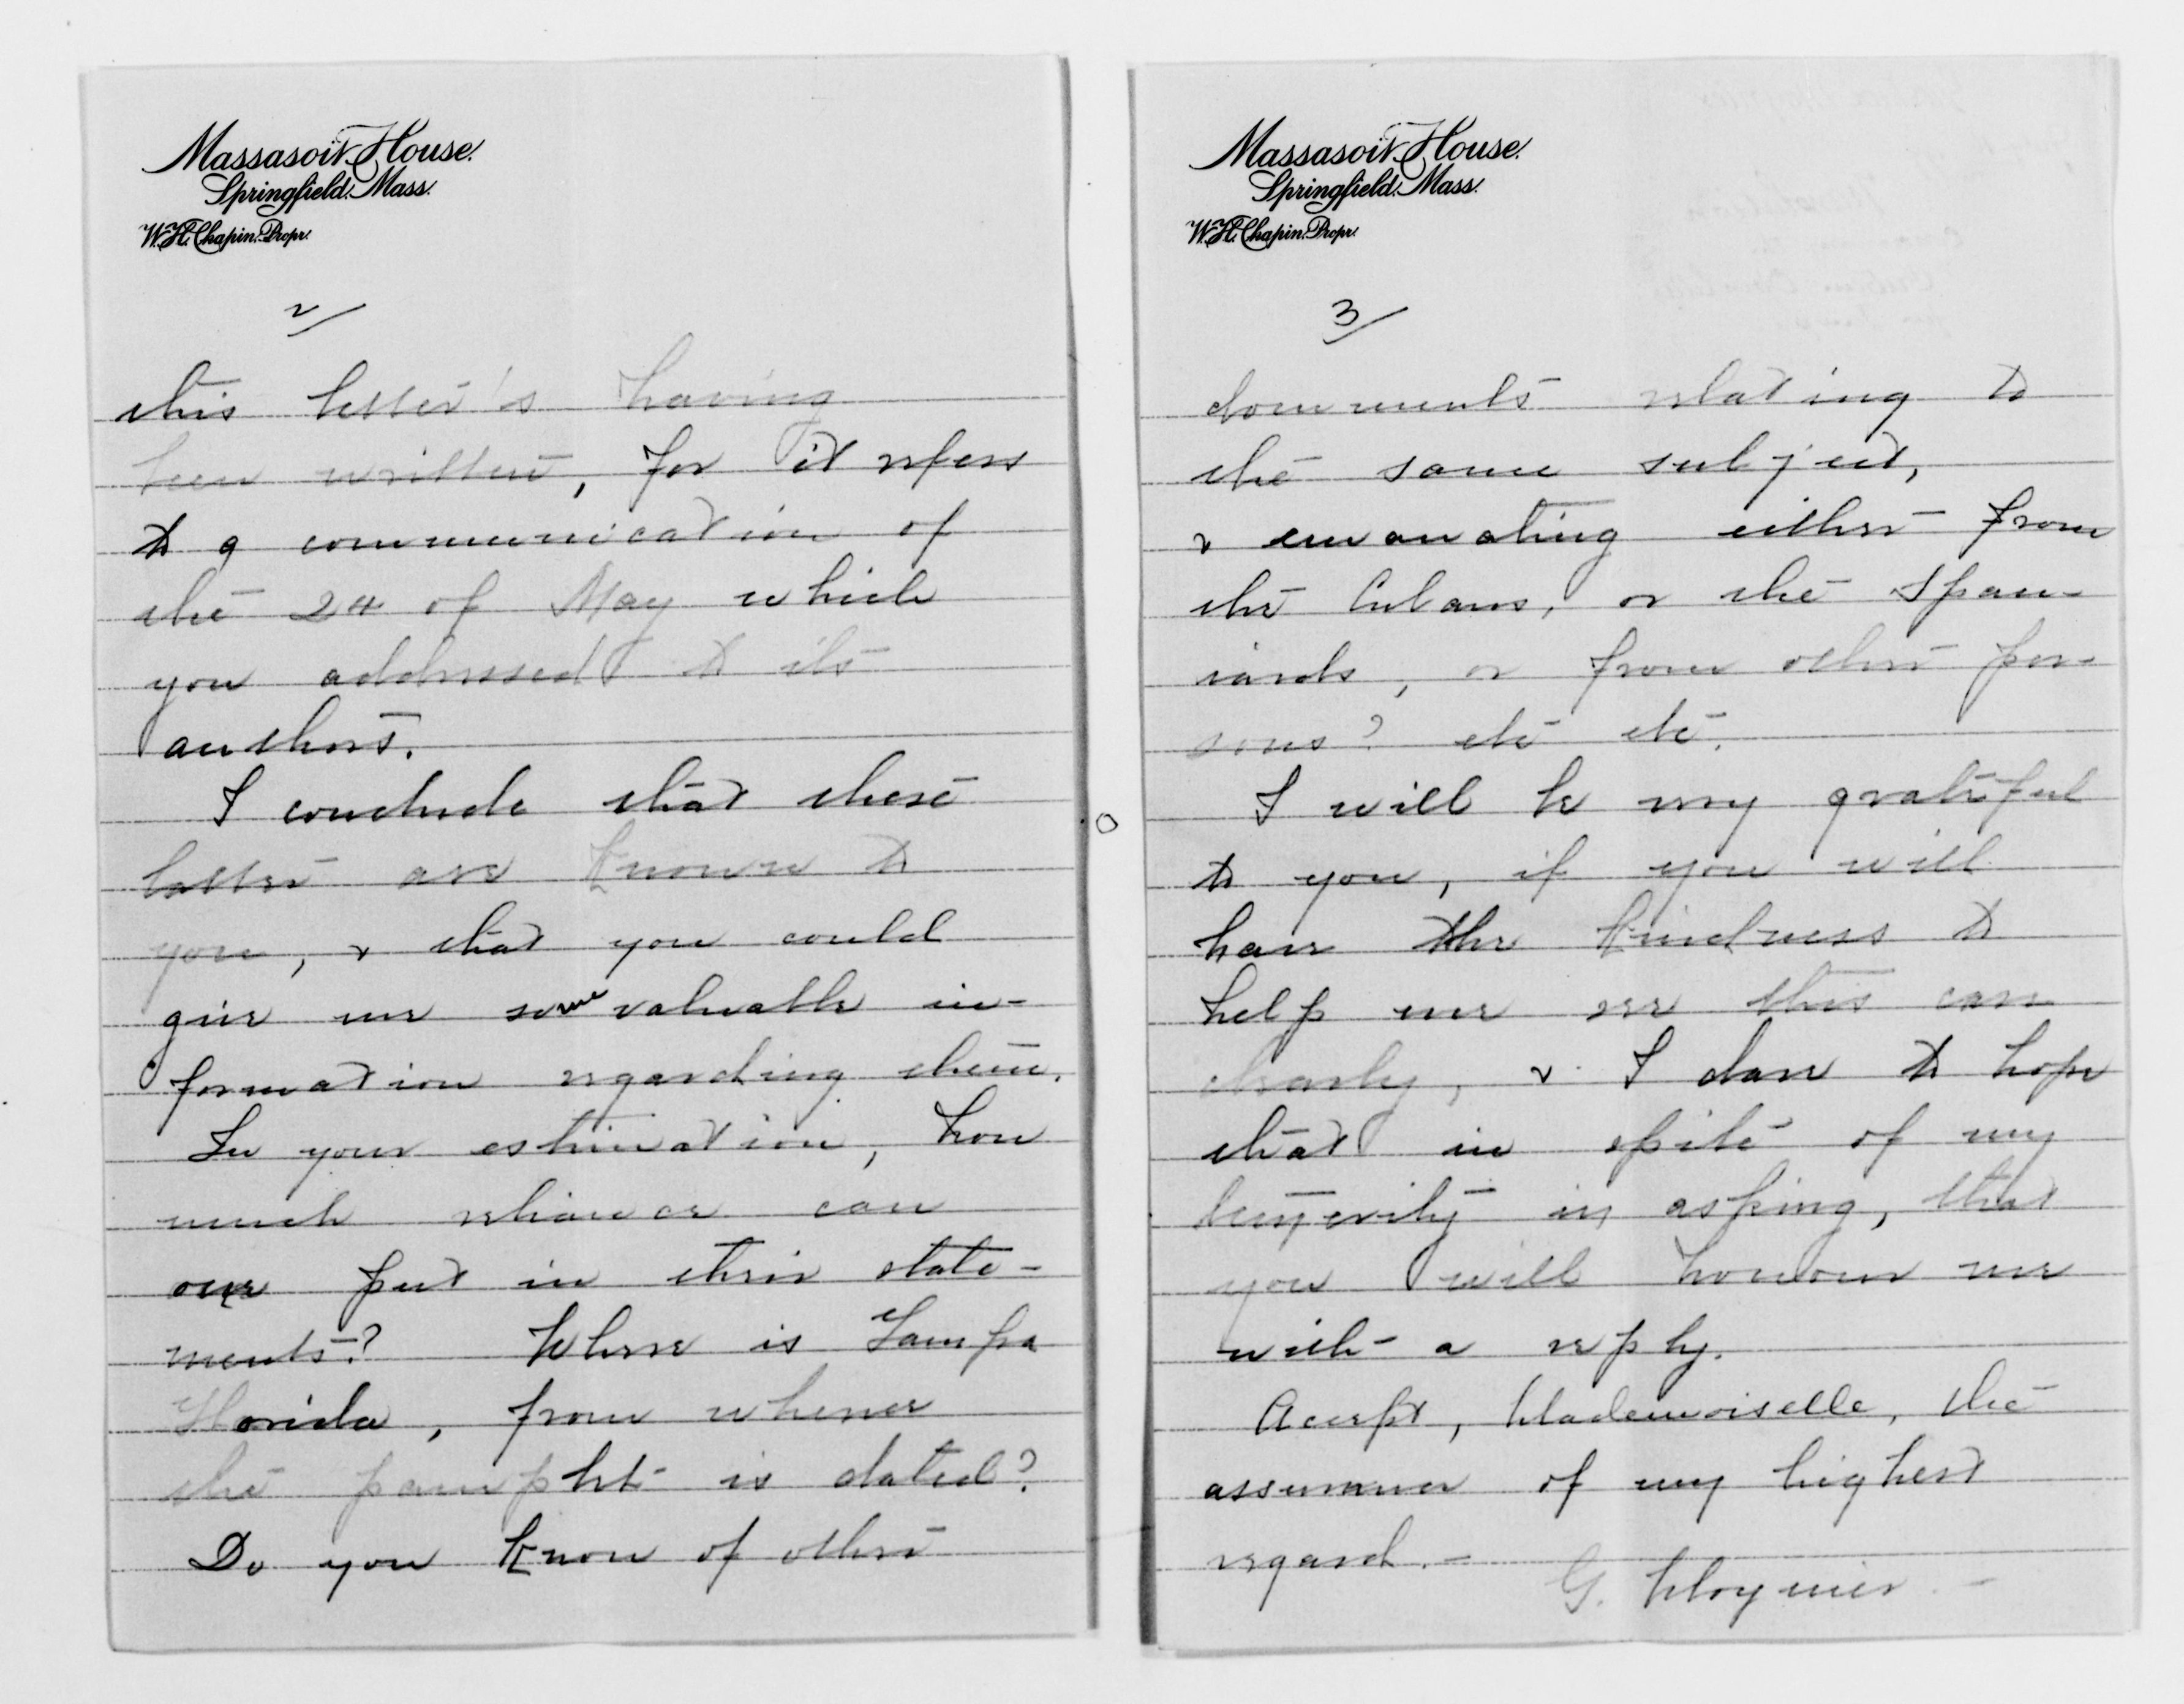 Massasoit House.
Springfield. Mass.
W. H. Chapin. Propr.
2/
this letter's having
been written, for it refers
to a communication of
the 24 of May which
you addressed to its
authors.
I conclude that these
letters are known to
you, & that you could
give me some valuable in-
formation regarding them.
In your estimation, how
much reliance can
one put in their state-
ments? Where is Tampa
Florida, from whence
the pamphlet is dated?
Do you know of other
Massasoit House.
Springfield. Mass.
W. H. Chapin. Propr.
3/
documents relating to
the same subject,
& emanating either from
the Cubans, or the Span-
iards, or from other per-
sons? etc etc.
I will be very grateful
to you, if you will
have the kindness to
help me see this case
clearly, & I dare to hope
that in spite of my
temerity in asking, that
you will honour me
with a reply.
Accept, Mademoiselle, the
assurance of my highest
regard. -
G. Moynier. -